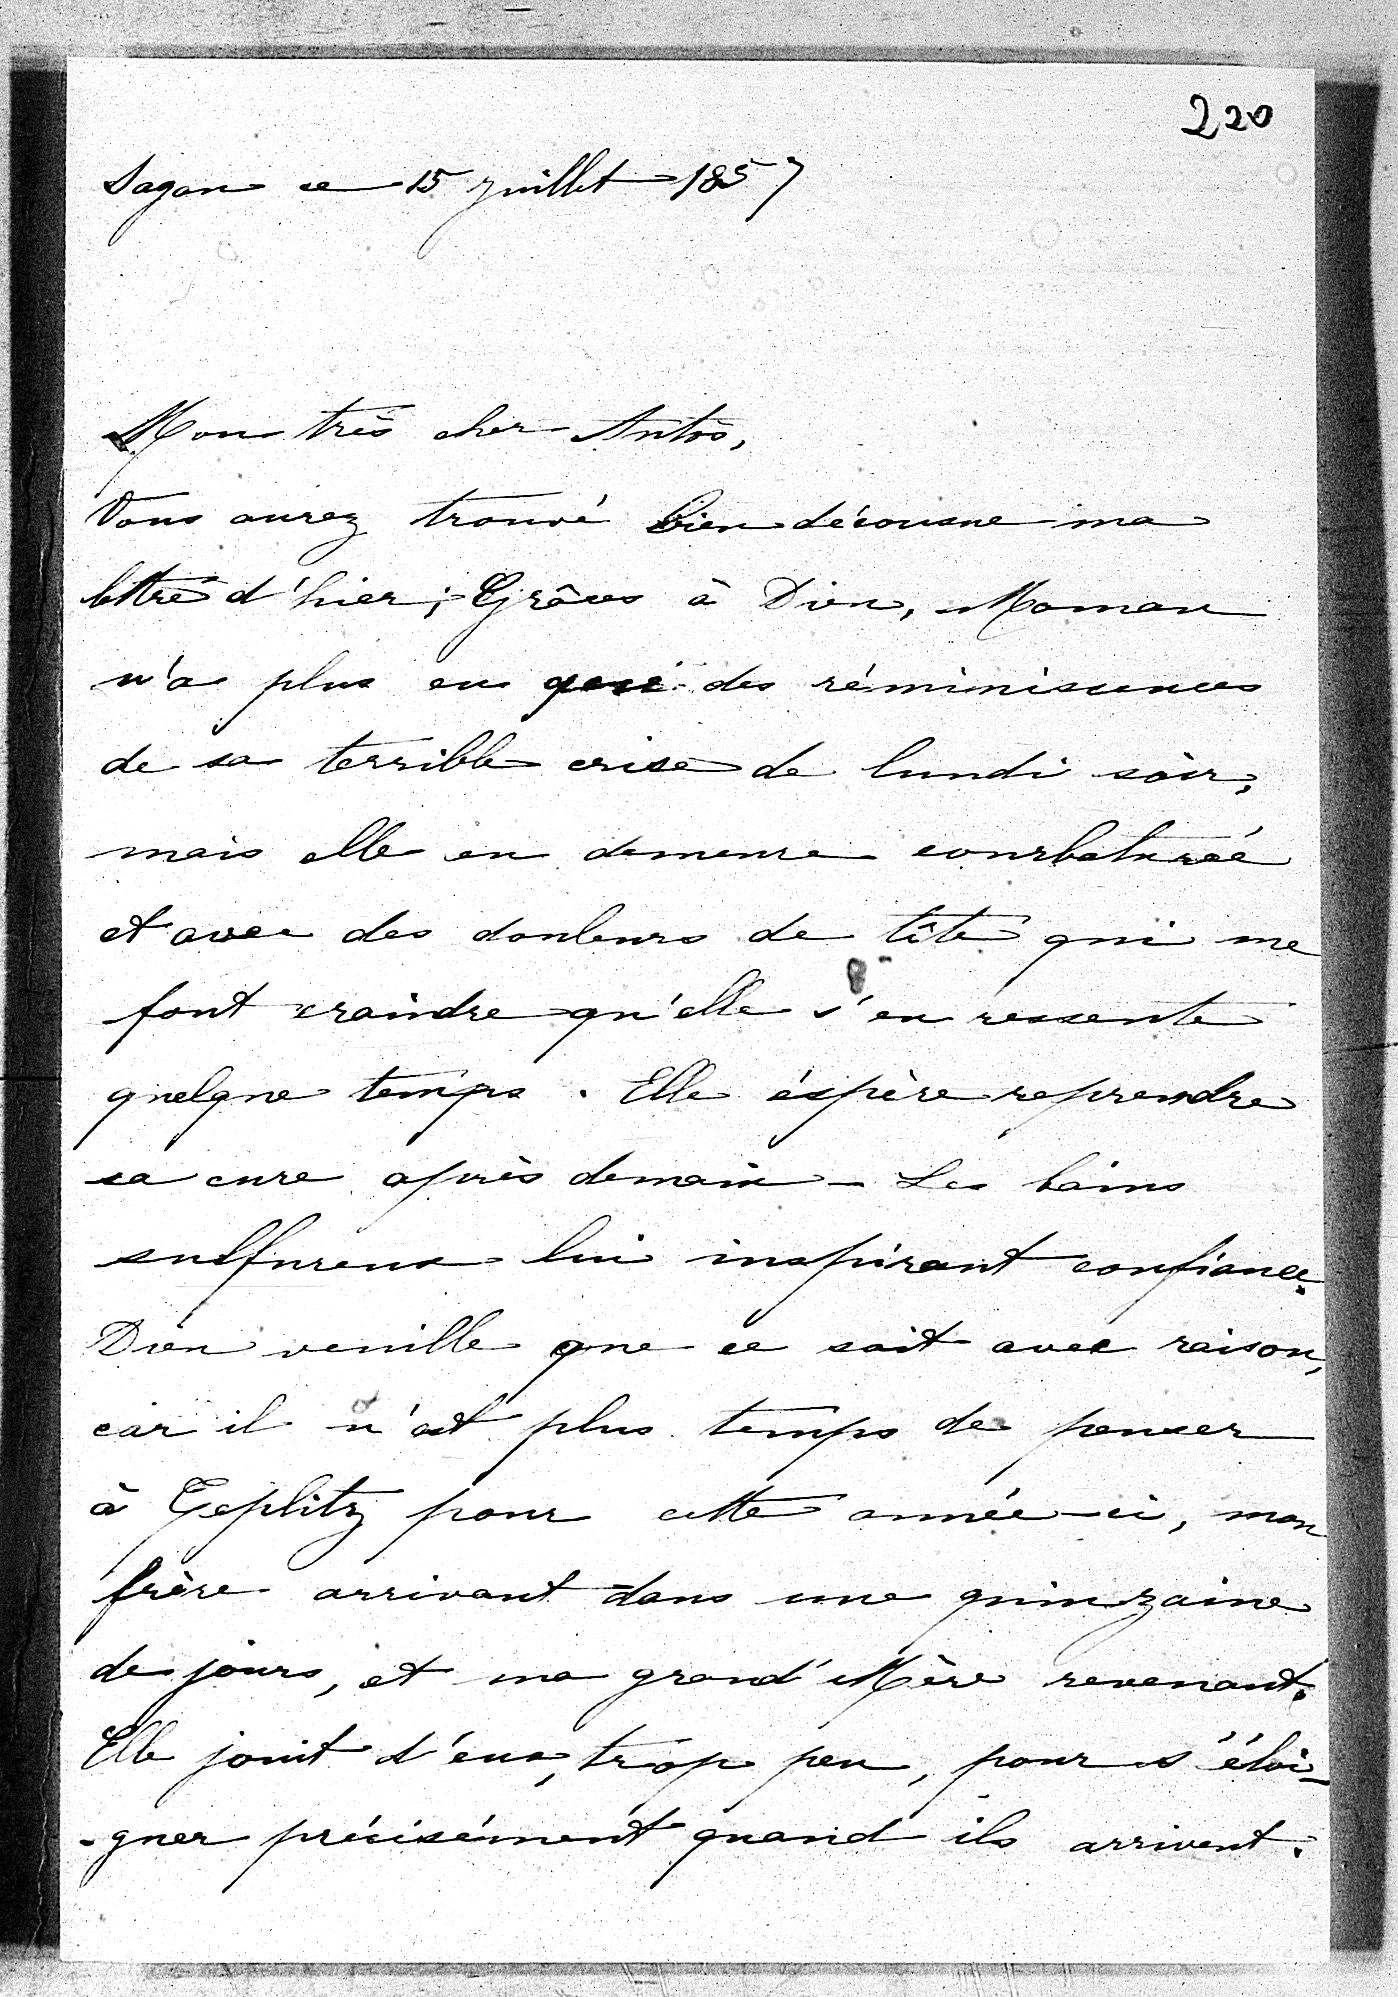 220
Sagan ce 15 juillet 1857
Mon très cher Antos,
Vous aurez trouvé bien décousue ma
lettre d'hier; Grâces à Dieu, Maman
n'a plus eu que des réminiscences
de sa terrible crise de lundi soir,
mais elle en demeure courbaturée
et avec des douleurs de tête qui me
font craindre qu'elle s'en ressente
quelque temps. Elle éspère reprendre
sa cure après demain - Les bains
sulfureux lui inspirant confiance.
Dieu veuille que ce soit avec raison,
car il n'est plus temps de penser
à Teplitz pour cette année-ci, mon
frère arrivant dans une quinzaine
de jours, et ma grand'Mère revenant.
Elle jouit d'eux, trop peu, pour s'éloi-
-gner précisément quand ils arrivent.